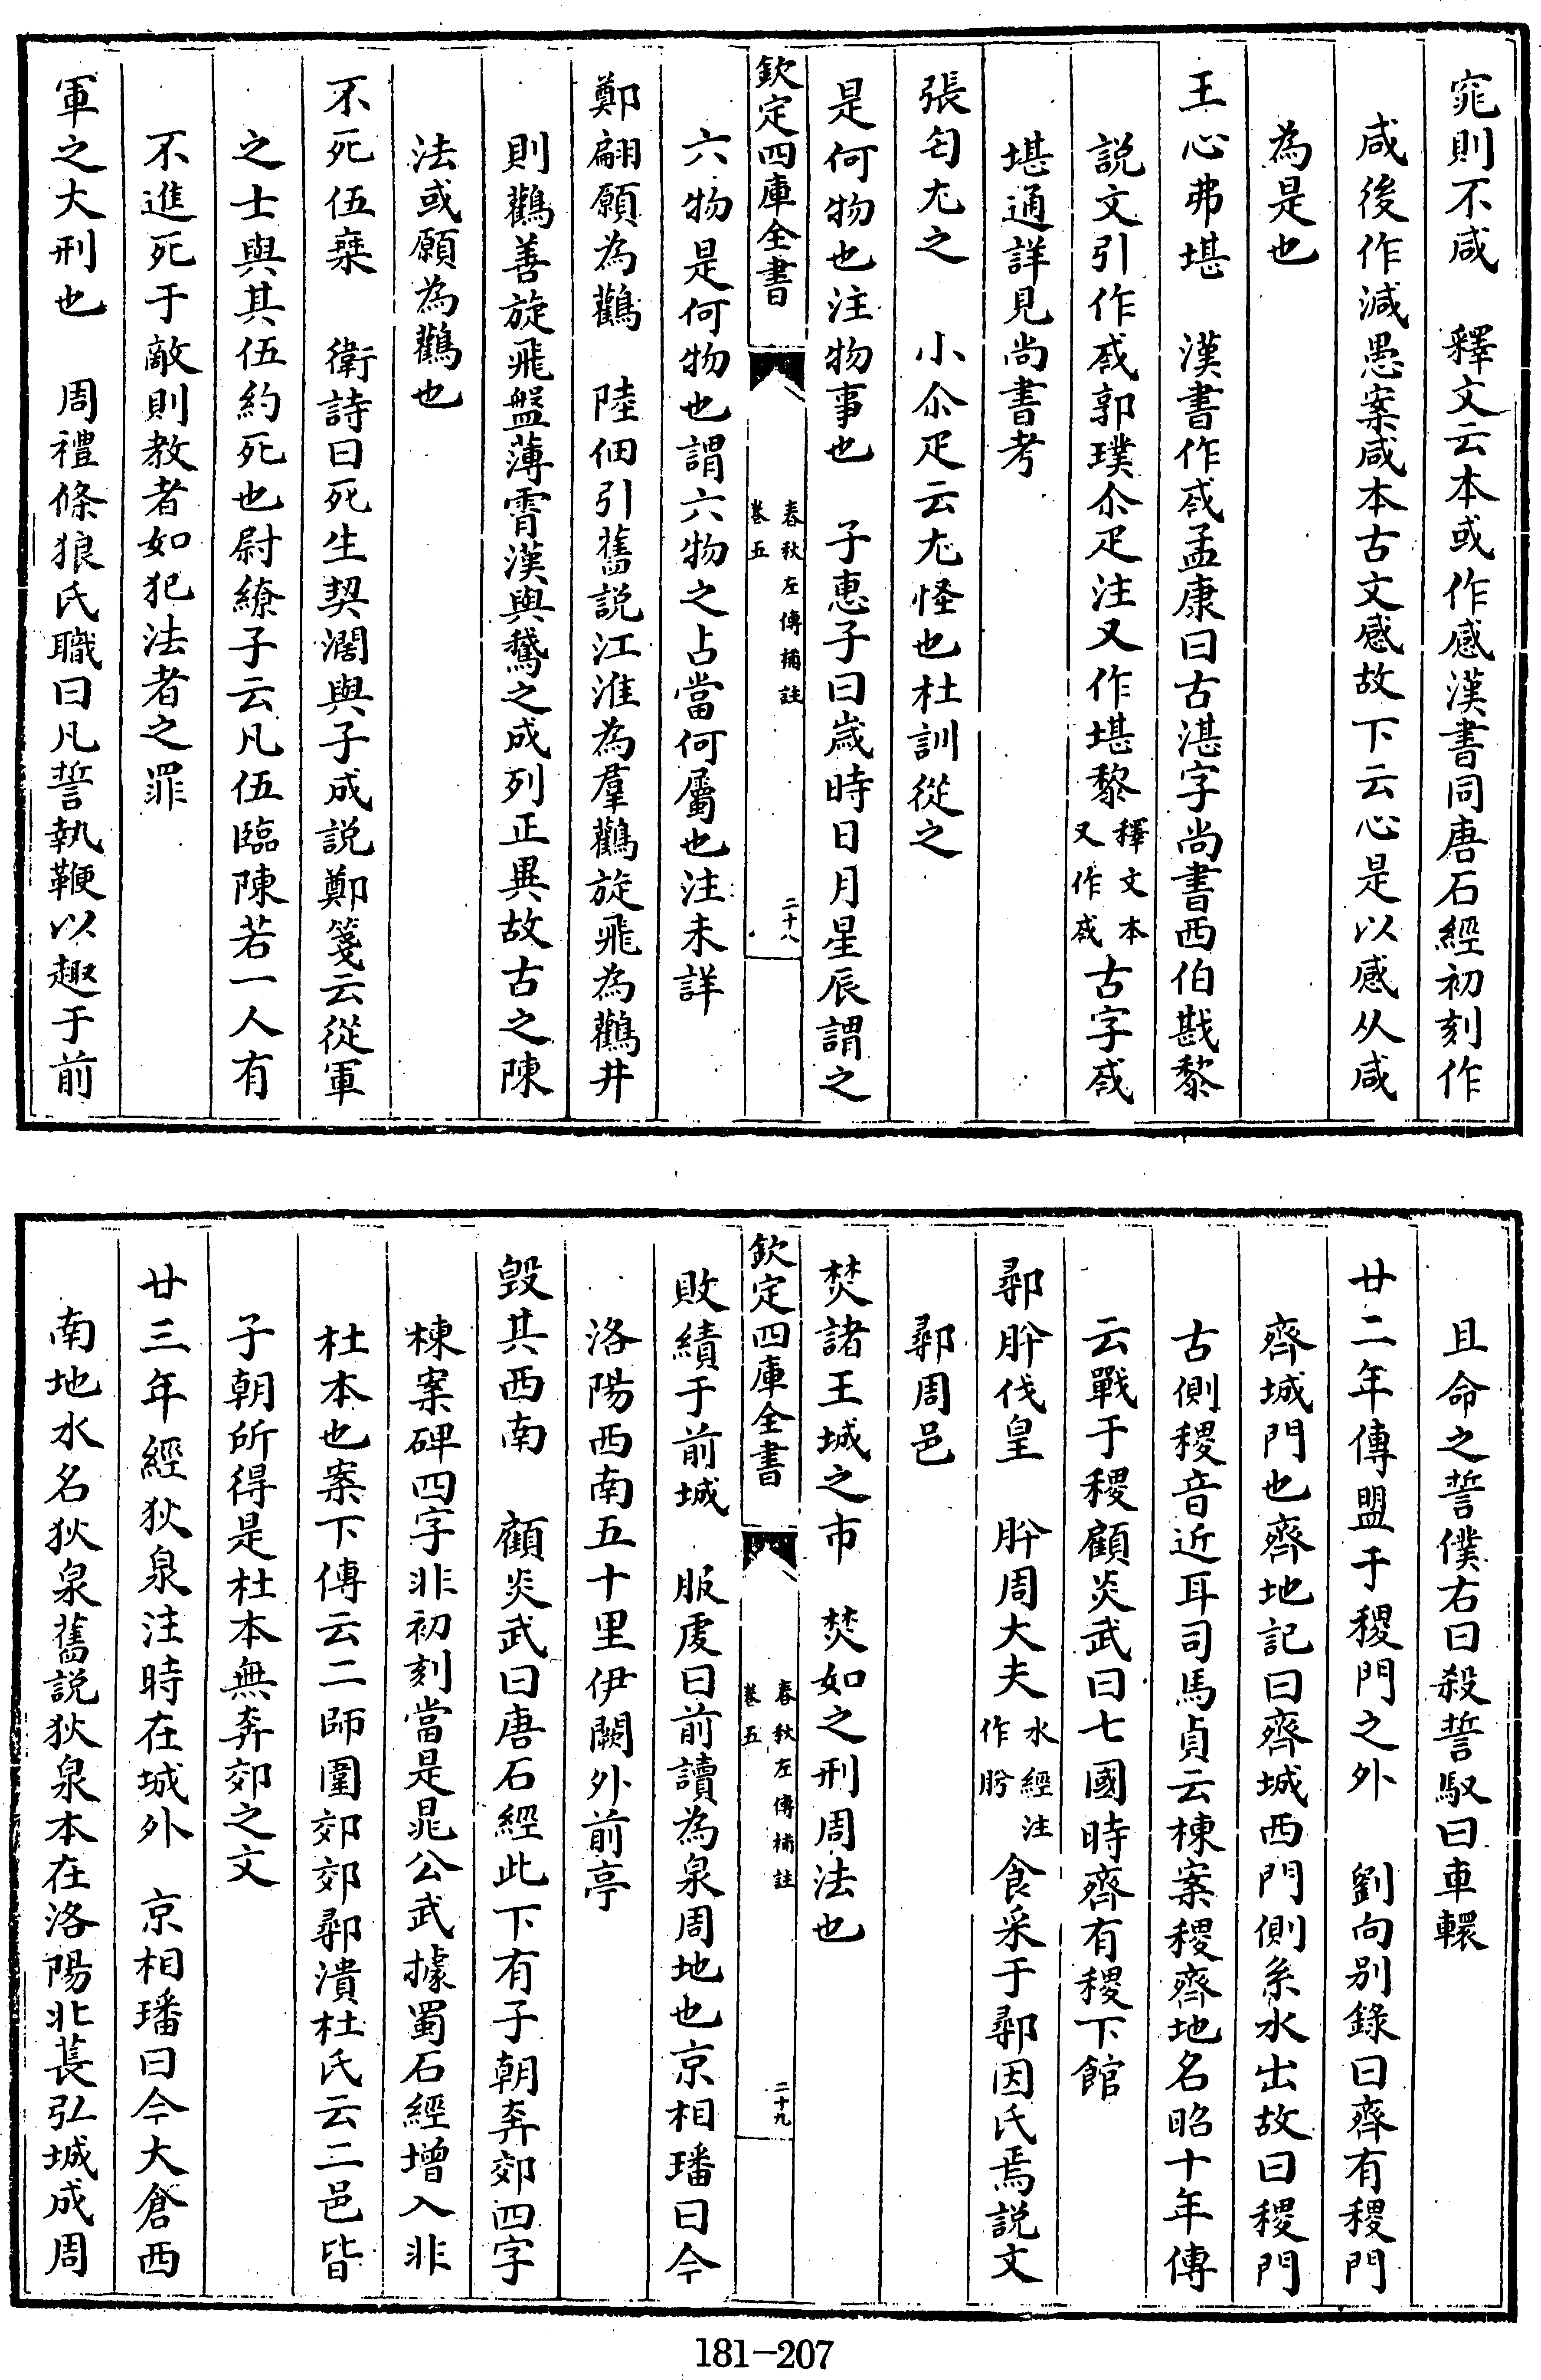 窕則不咸　釋文云本或作感漢書同唐石經初刻作
咸後作減愚案咸本古文感故下云心是以感从咸
為是也
王心弗堪　漢書作㦿孟康曰古湛字尚書西伯戡黎
説文引作㦿郭璞尒疋注又作堪黎釋文本又作㦿古字㦿
堪通詳見尚書考
張匄尤之　小尒疋云尤怪也杜訓從之
是何物也注物事也　子惠子曰歲時日月星辰謂之
欽定四庫全書
春秋左傳補註
卷五
二十八
六物是何物也謂六物之占當何屬也注未詳
鄭翩願為鸛　陸佃引舊説江淮為羣鸛旋飛為鸛井
則鸛善旋飛盤薄霄漢與鵞之成列正異故古之陳
法或願為鸛也
不死伍椉　衛詩曰死生契濶與子成説鄭箋云從軍
之士與其伍約死也尉繚子云凡伍臨陳若一人有
不進死于敵則教者如犯法者之罪
軍之大刑也　周禮條狼氏職曰凡誓執鞭以趣于前
且命之誓僕右曰殺誓馭曰車轘
廿二年傳盟于稷門之外　劉向别錄曰齊有稷門
齊城門也齊地記曰齊城西門側系水出故曰稷門
古側稷音近耳司馬貞云棟案稷齊地名昭十年傳
云戰于稷顧炎武曰七國時齊有稷下館
鄩肸伐皇　肸周大夫水經注作肹食采于鄩因氏焉説文
鄩周邑
焚諸王城之市　焚如之刑周法也
欽定四庫全書
春秋左傳補註
卷五
二十九
敗績于前城　服虔曰前讀為泉周地也京相璠曰今
洛陽西南五十里伊闕外前亭
毁其西南　顧炎武曰唐石經此下有子朝奔郊四字
棟案碑四字非初刻當是晁公武據蜀石經增入非
杜本也案下傳云二師圍郊郊鄩潰杜氏云二邑皆
子朝所得是杜本無奔郊之文
廿三年經狄泉注時在城外　京相璠曰今大倉西
南地水名狄泉舊説狄泉本在洛陽北萇弘城成周
181-207